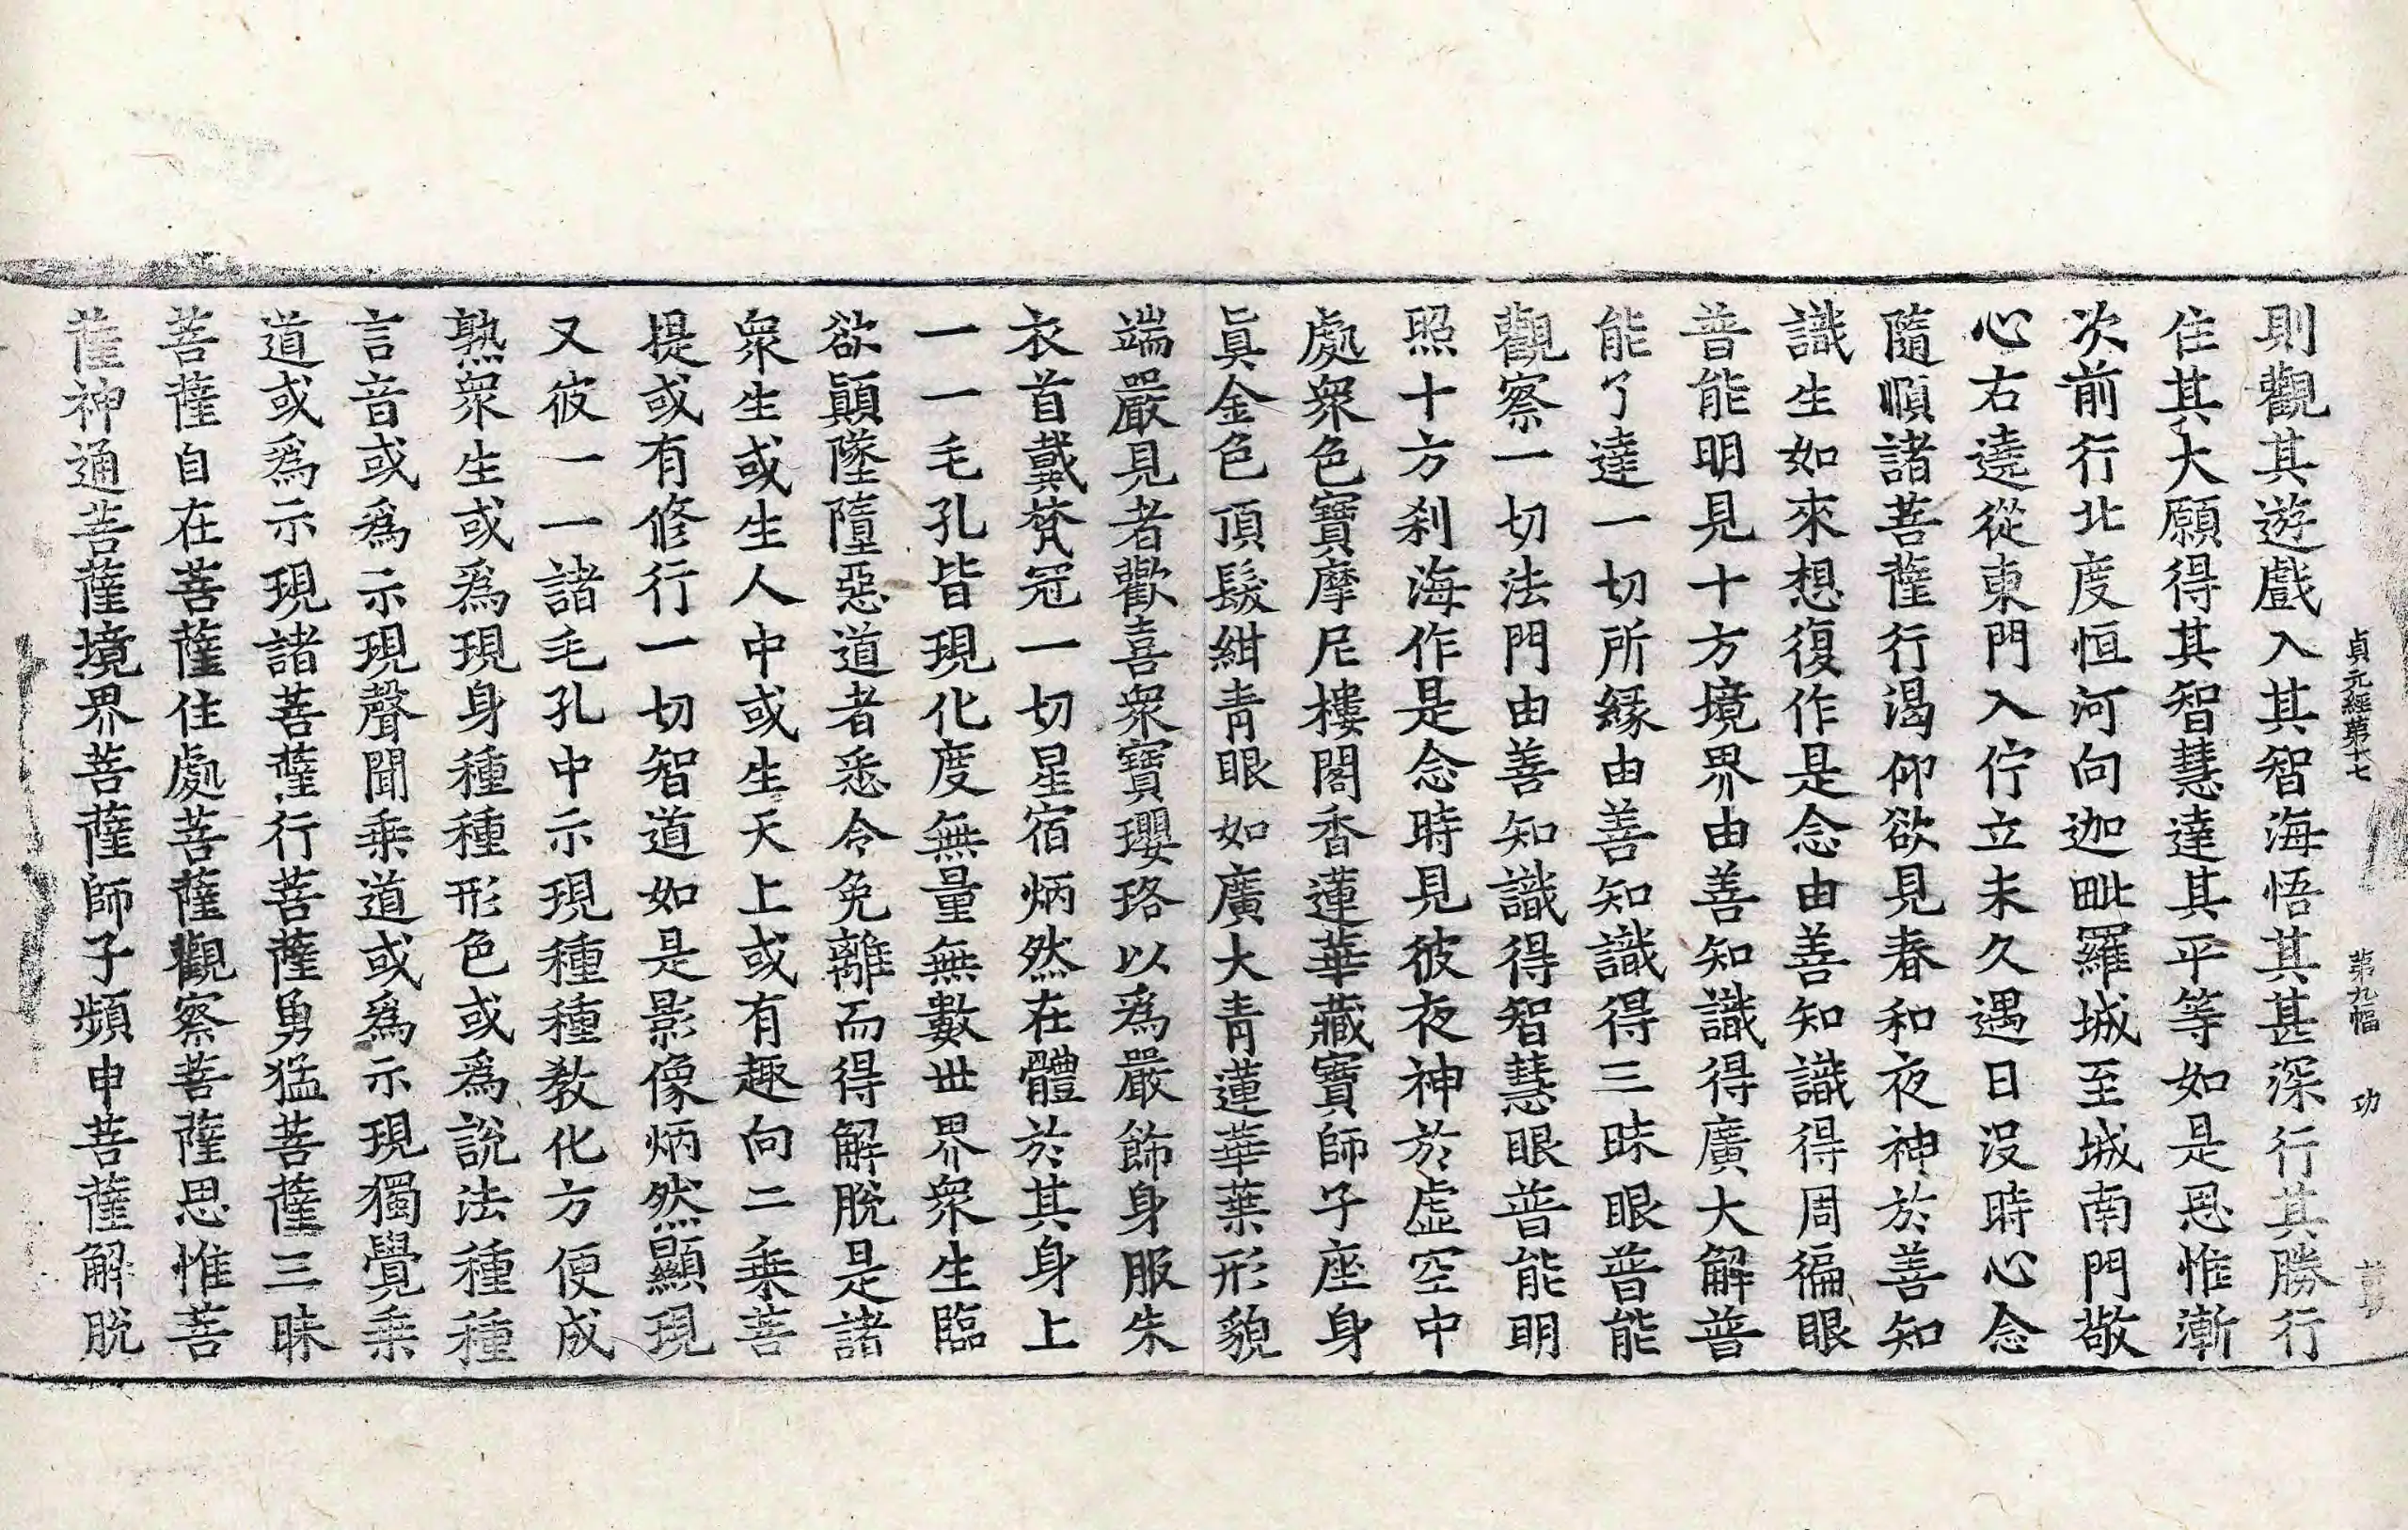 貞元經第十七　第九幅　功
則觀其遊戲入其智海悟其甚深行其勝行
住其大願得其智慧達其平等如是思惟漸
次前行北度恒河向迦毗羅城至城南門敬
心右遶從東門入佇立未久遇日沒時心念
隨順諸菩薩行渴仰欲見春和夜神於善知
識生如來想復作是念由善知識得周徧眼
普能明見十方境界由善知識得廣大解普
能了達一切所緣由善知識得三昧眼普能
觀察一切法門由善知識得智慧眼普能明
照十方刹海作是念時見彼夜神於虛空中
處衆色寶摩尼樓閣香蓮華藏寶師子座身
眞金色頂髮紺青眼如廣大青蓮華葉形貌
端嚴見者歡喜衆寶瓔珞以爲嚴飾身服朱
衣首戴梵冠一切星宿炳然在體於其身上
一一毛孔皆現化度無量無數世界衆生臨
欲顚墜墮惡道者悉令免離而得解脫是諸
衆生或生人中或生天上或有趣向二乘菩
提或有修行一切智道如是影像炳然顯現
又彼一一諸毛孔中示現種種教化方便成
熟衆生或爲現身種種形色或爲說法種種
言音或爲示現聲聞乘道或爲示現獨覺乘
道或爲示現諸菩薩行菩薩勇猛菩薩三昧
菩薩自在菩薩住處菩薩觀察菩薩思惟菩
薩神通菩薩境界菩薩師子頻申菩薩解脫